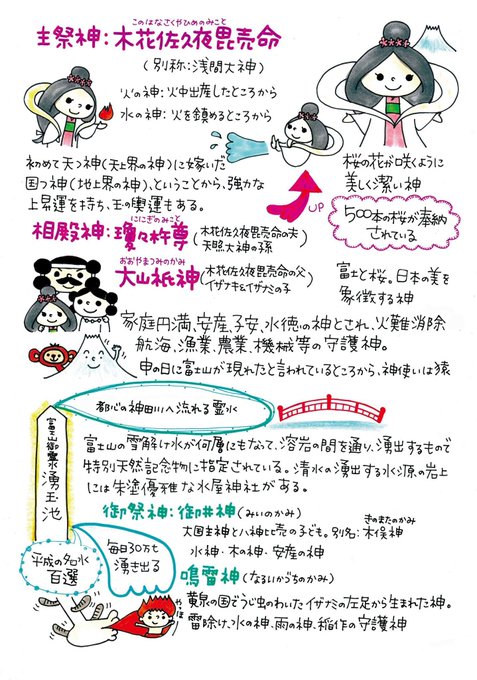 このはなさくやひめのみこと
主祭神:木花佐久夜毘売命
(別称:浅間大神)
火の神:火中出産したところから
水の神:火を鎮めるところから
初めて天つ神(天上界の神)に嫁いだ
国つ神(地上界の神)、ということから、強力な
上昇運を持ち、玉の輿運もある。
UP
桜の花が咲くように
美しく潔い神
500本の桜が奉納
されている
富士と桜。日本の美を
象徴する神
ににぎのみこと
相殿神:瓊々杵尊(木花佐久夜毘売命の夫
天照大神の孫
おおやまつみのかみ
大山祇神(木花佐久夜毘売命の父
イザナキとイザナミの子
家庭円満、安産、子安、水徳の神とされ、火難消除
航海、漁業、農業、機械等の守護神。
申の日に富士山が現れたと言われているところから、神使いは猿
都心の神田川へ流れる霊水
富士山御霊水
湧玉池
富士山の雪解け水が何層にもなって、溶岩の間を通り、湧出するもので
特別天然記念物に指定されている。清水の湧出する水源の岩上
には朱塗優雅な水屋神社がある。
御祭神:御井神(みいのかみ)
きのまたのかみ
大国主神と八神比売の子ども。別名:木俣神
水神・木の神・安産の神
平成の名水
百選
毎日30万t
湧き出る
鳴雷神(なるいかづちのかみ)
黄泉の国でうじ虫のわいたイザナミの左足から生まれた神。
雷除け、水の神、雨の神、稲作の守護神
やっほー